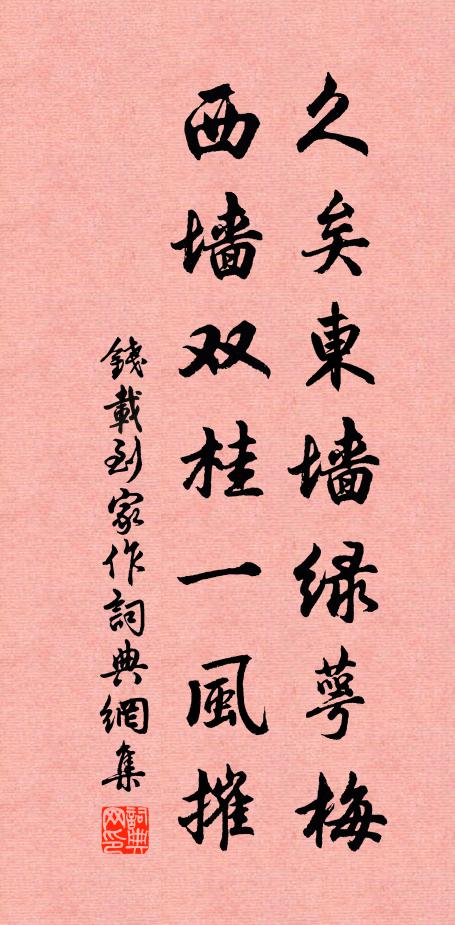 久矣東墙緑萼梅
西墙双桂一風摧
錢載到家作詞典網集
詞典网印